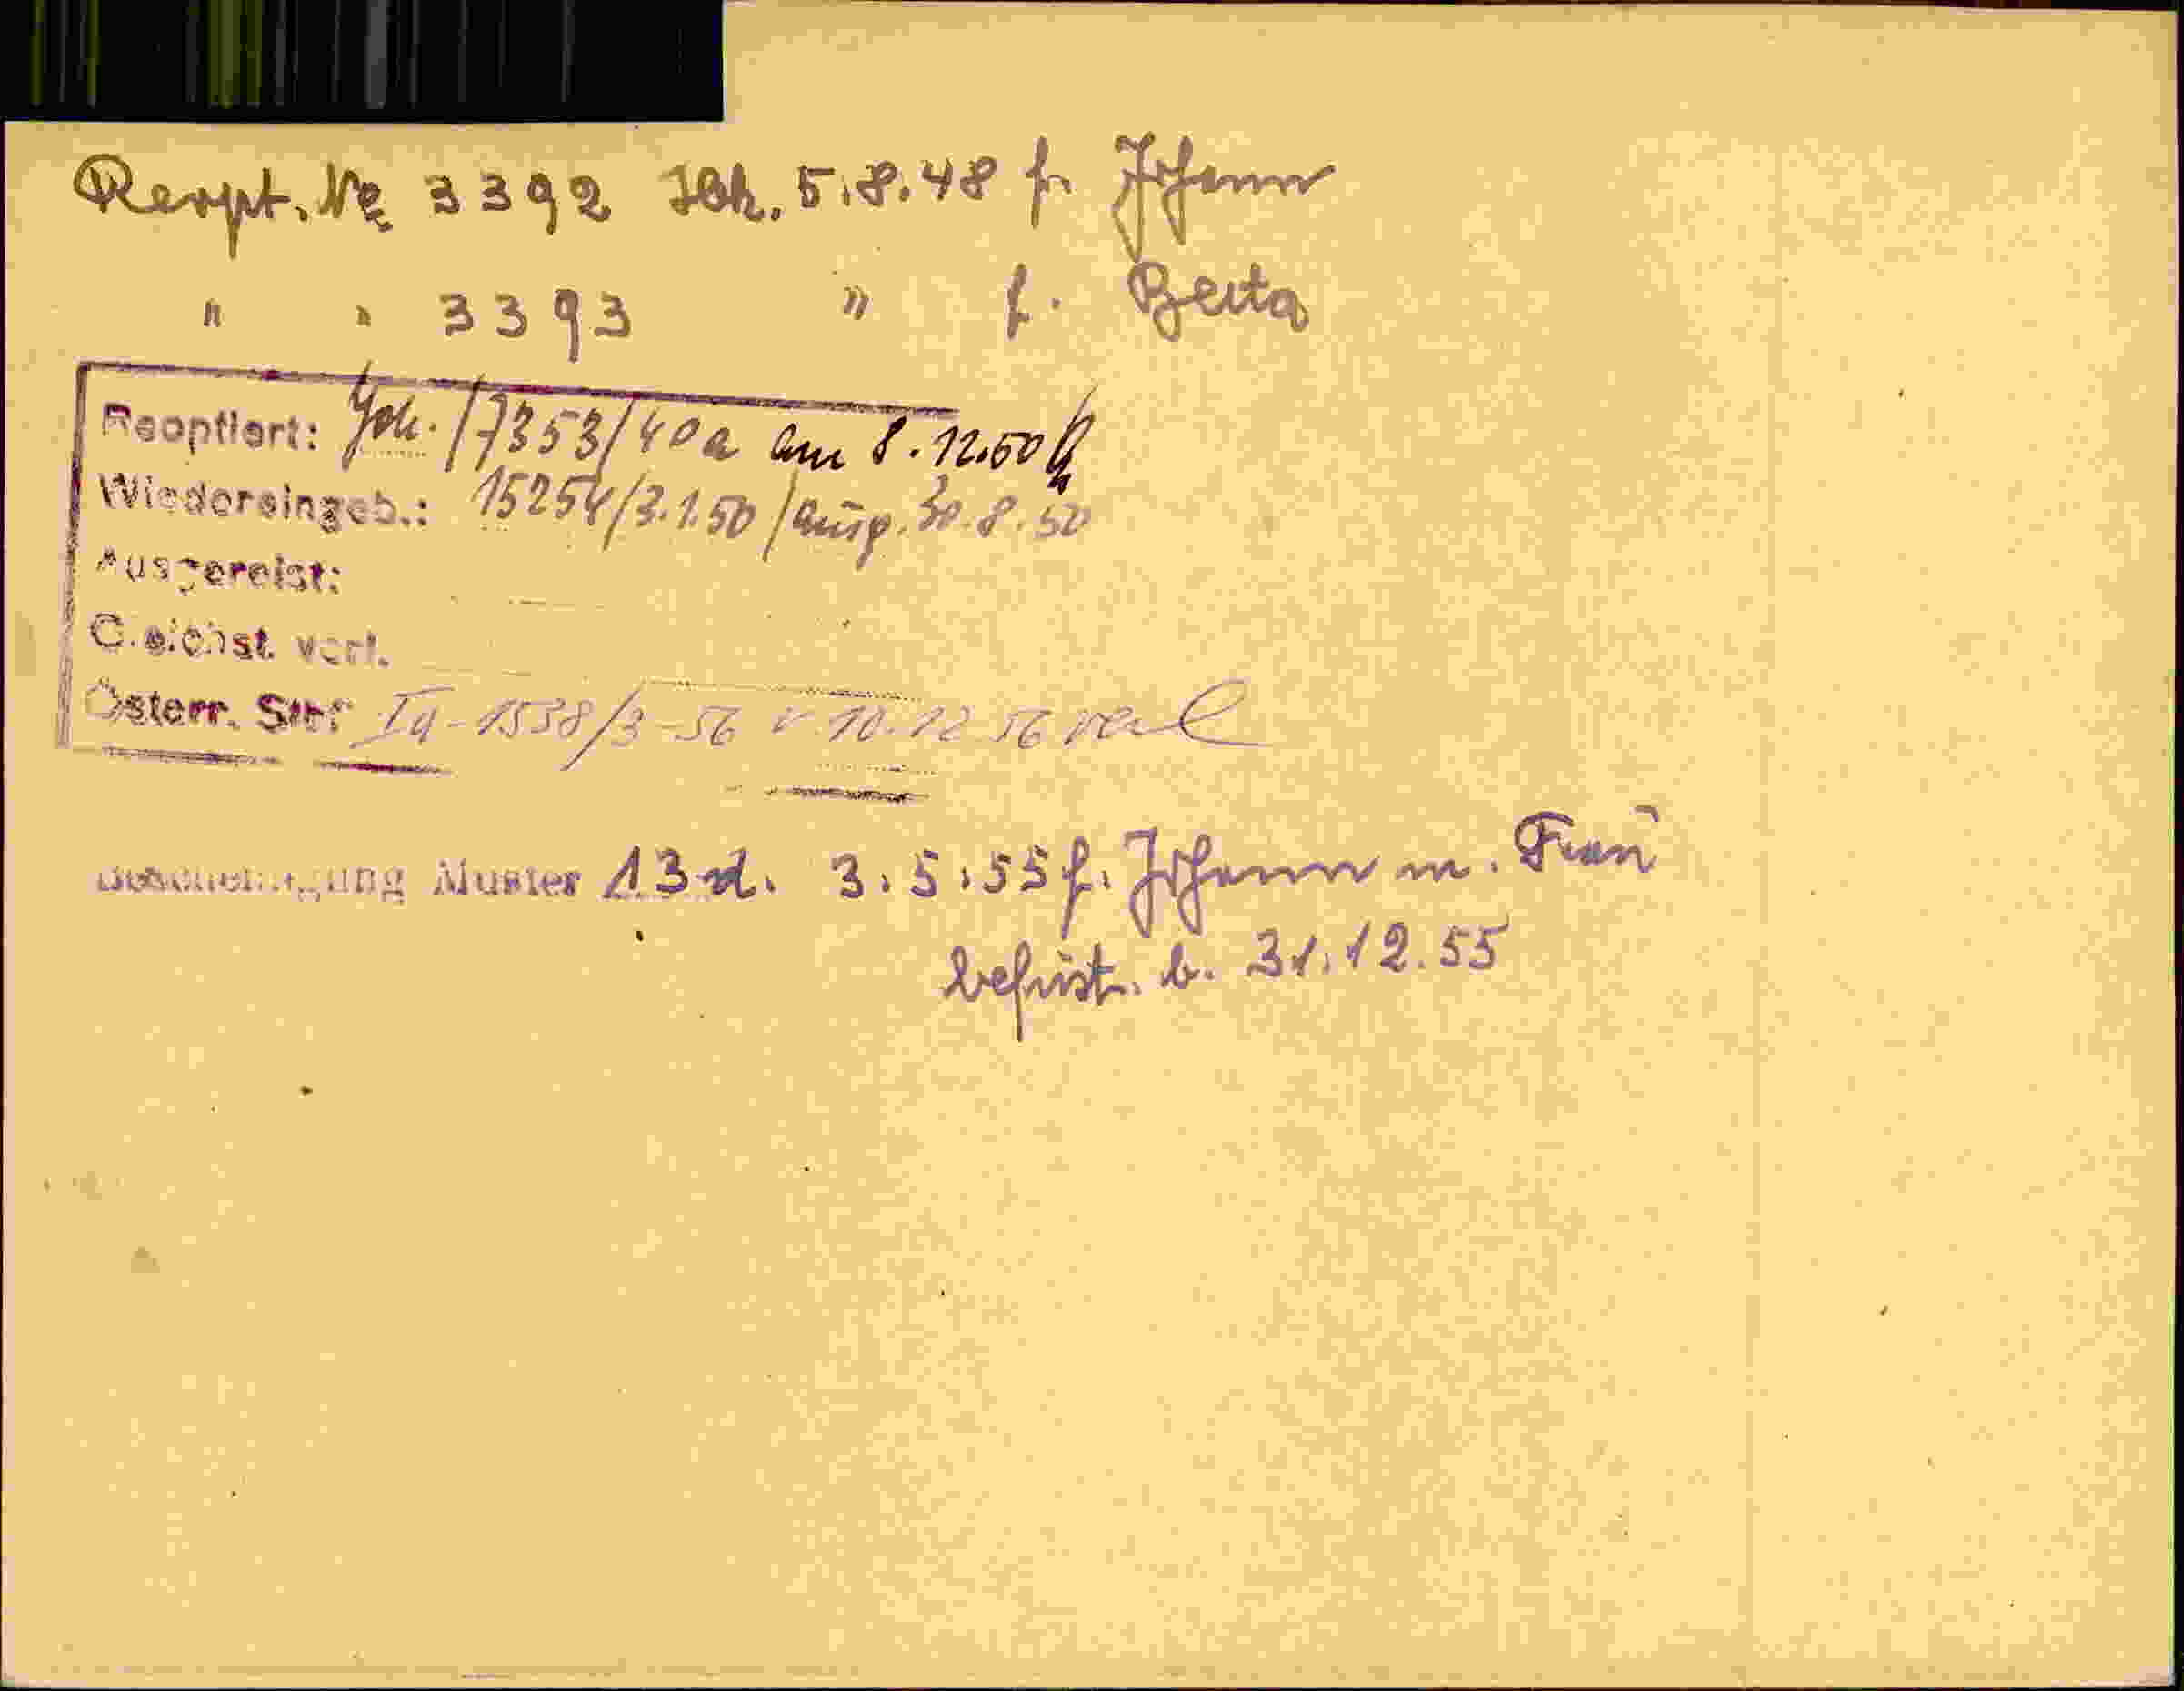 Reopt. No 3392 Ibk. 5.8.48 f. Johann
" " 3393 " f. Berta
Reoptiert: Joh. 17353/40a am 8.12.50
Wiedereingeb.: 15254/3.1.50/ausg. 30.8.50
Ausgereist:
Gleichst. verl.
Österr. Stb: Ia-1538/3-56 v. 10.12 56 verl
Bescheinigung Muster 13 d. 3.5.55 f. Johann m. Frau
befrist. b. 31.12.55